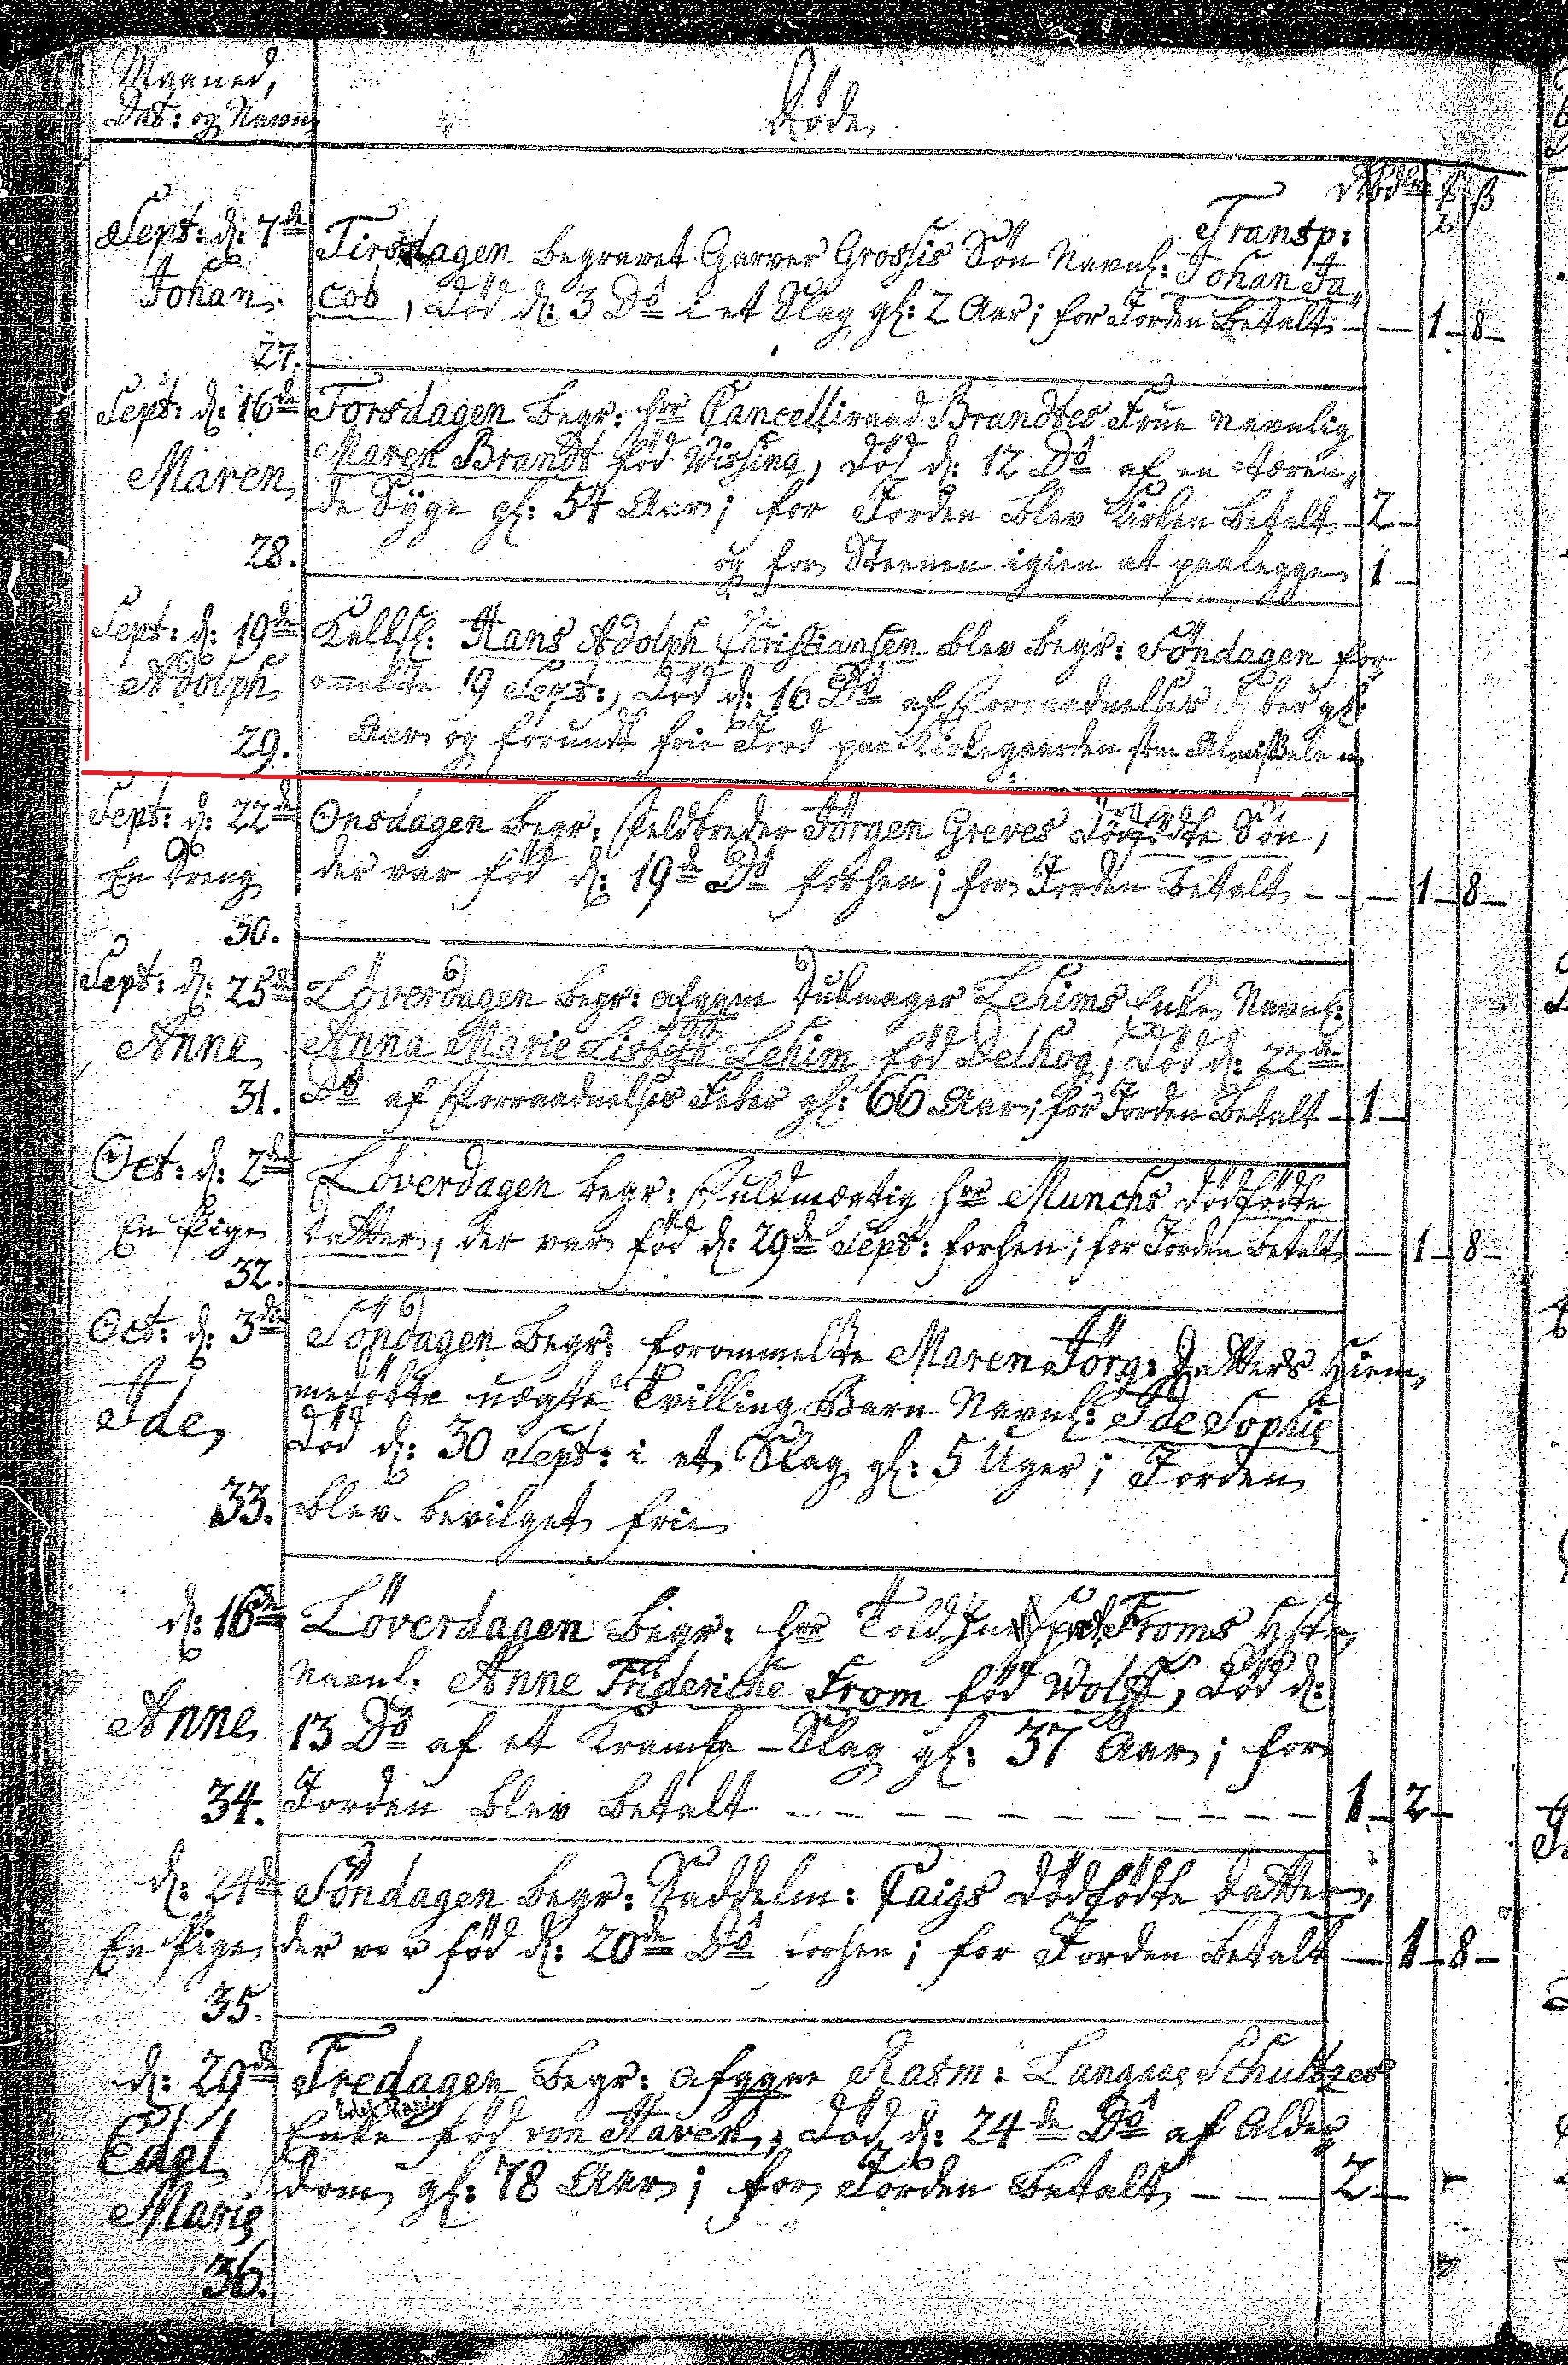 Maaned,
Dat: og Navn
Døde
Rbdlr ₰ ß
Transp:
Sept: d: 7de
Tirsdagen begravet Garver Grossis Sön Navnl: Johan Ja„
Johan
cob, död d: 3 Do i et Slag gl: 2 Aar; for Jorden betalt — — 1 – 8 –
27.
Sept: d: 16de
Torsdagen begr: Hr Cancelliraad Brandtes Frue navnlig
Maren
Maren Brandt föd Wissing, död d: 12 Do af en tæren„
de Syge gl: 54 Aar; for Jorden blev Kirken betalt – 2 –
28.
og for Steenen igien at paalegge 1 –
Sept: d: 19de
Hans Adolph Christiansen blev begr: Söndagen for„
Adolph
ommelte 19 Sept:, död d: 16 Do af Forraadnelses Feber gl:
29.
Aar og forundt frie Jord paa Kirkegaarden som Almisse
Sept: d: 22de
Onsdagen begr: Feldbereder Jörgen Greves dödfödte Sön,
En Dreng
der var föd d: 19de Do forhen; for Jorden betalt – – — 1 – 8 –
30.
Sept: d: 25de
Löverdagen begr: afggne Dukmager Lehims Enke Navnl:
Anne
Anna Marie Lisbeth Lehim föd Delhog, död d: 22de
31.
Do af Forraadnelses Feber gl: 66 Aar; for Jorden betalt – 1 –
Oct: d: 2den
Löverdagen begr: Fuldmægtig Hr Munchs dödfödte
En Pige
Datter, der var föd d: 29de Sept: forhen; for Jorden betalt — 1 – 8 –
32.
Oct: d: 3die
Söndagen begr: forommelte Maren Jörg: Datters Hiem„
Ide
medöbte uægte Tvilling Barn Navnl: Ide Sophie
död d: 30 Sept: i et Slag gl: 5 Uger; Jorden
33.
blev bevilget frie
d: 16de
Löverdagen begr: Hr Told Froms Hstr
Navnl: Anne Frideriche From föd Wolff, död d:
Anne
13 Do af et Krampe-Slag gl: 37 Aar; for
34.
Jorden blev betalt – – – – – – – – – – 1 – 2 –
d: 24de
Söndagen begr: Saddelm: Caigs dödfödte Datter,
En Pige
der var föd d: 20de Do forhen; for Jorden betalt — 1 – 8 –
35.
d: 29de
Fredagen begr: afggne Rasm: Langes Schultzes
Edel
Enke föd von Haven, död d: 24de Do af Alder„
Marie
dom gl: 78 Aar; for Jorden betalt – – — 2 –
36.